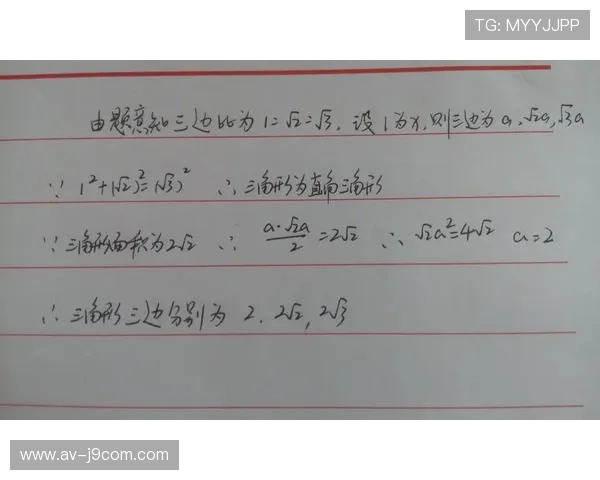 TG: MYYJJPP
由题意知三边比为1:√2:√3. 设1为x,则三边为a,√2a,√3a
∵ 1²+(√2)²=(√3)² ∴三角形为直角三角形
∵三角形面积为2√2 ∴ a·√2a/2=2√2 ∴ √2a²=4√2 a=2
∴三角形三边分别为 2. 2√2, 2√3
www.av-j9com.com